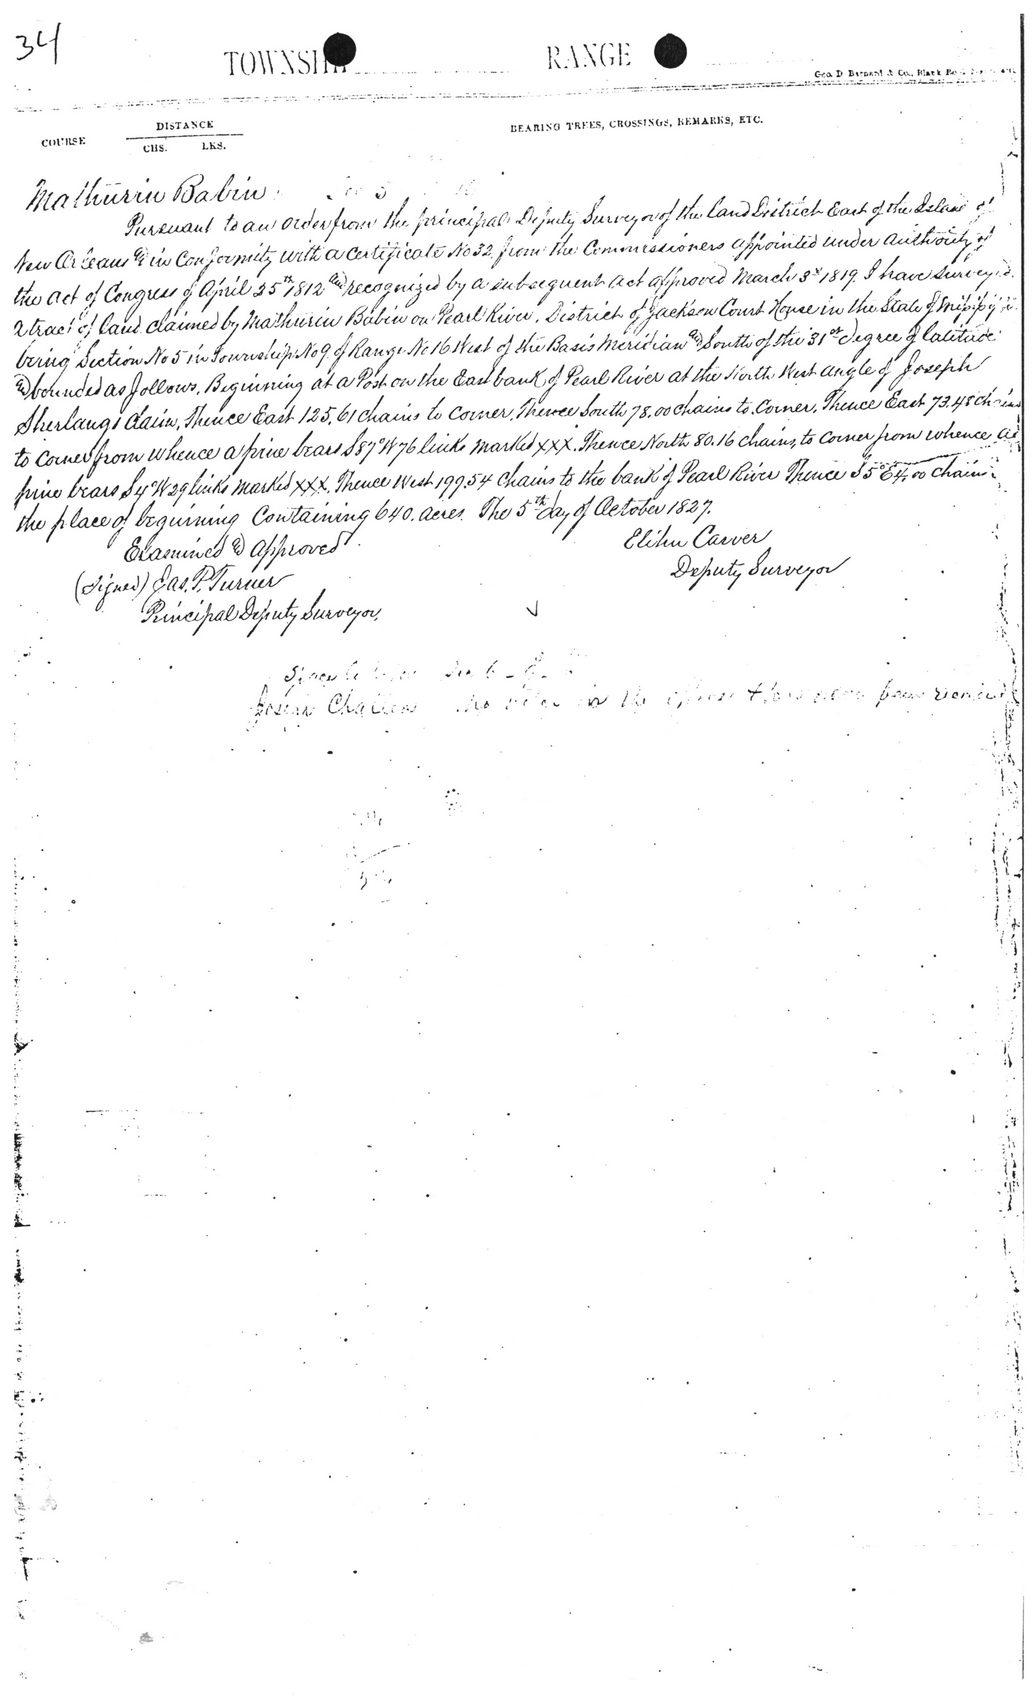 34
TOWNSHIP RANGE
Geo. D. Barnard & Co., Blank Bo
COURSE DISTANCE BEARING TREES, CROSSINGS, REMARKS, ETC.
CHS. LKS.
Mathurin Babin
Pursuant to an order from the principal Deputy Surveyor of the Land District East of the Island of
New Orleans & in Conformity with a Certificate No 32. from the Commissioners appointed under authority of
the act of Congress of April 25th 1812 and recognized by a subsequent act approved March 3d 1819. I have surveyed
a tract of land claimed by Mathurin Babin on Pearl River, District of Jackson Court House in the State of Mississippi
being Section No 5 in Township No 9 of Range No 16 West of the Basis Meridian and South of the 31st degree of latitude
and bounded as follows, Beginning at a Post on the East bank of Pearl River at the North West angle of Joseph
Claim, Thence East 125,61 chains to corner, Thence South 78,00 chains to Corner, Thence East 73.48 chains
to corner from whence a pine bears S 87° W 76 links marked XXX. Thence North 80.16 chains, to corner from whence a
pine bears S 4° W 29 links marked XXX, Thence West 199.54 chains to the bank of Pearl River Thence S 5° E 4,00 chains
the place of beginning Containing 640. acres. The 5th day of October 1827.
Examined & approved Elihu Carver
(Signed) Jas. P. Turner Deputy Surveyor
Principal Deputy Surveyor,
Joseph in the office